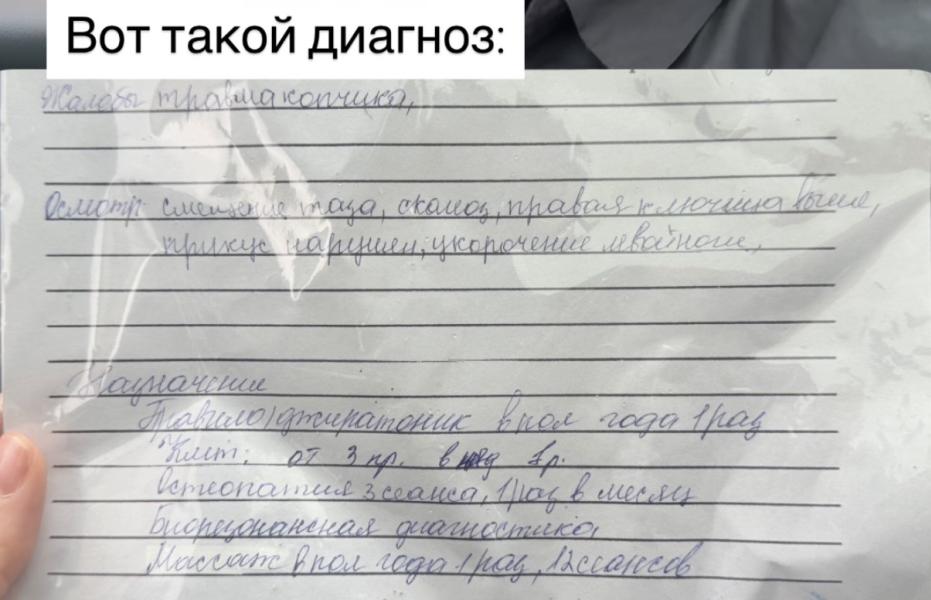 Вот такой диагноз:
Жалобы травма копчика,
Осмотр: смещение таза, сколиоз, правая ключица выше,
прикус нарушен, укорочение левой ноги,
Назначение
Правило/джиратоник в пол года 1 раз
от 3 пр. в нед 1 р.
Остеопатия 3 сеанса, 1 раз в месяц
Биорезонансная диагностика,
Массаж в пол года 1 раз, 12 сеансов